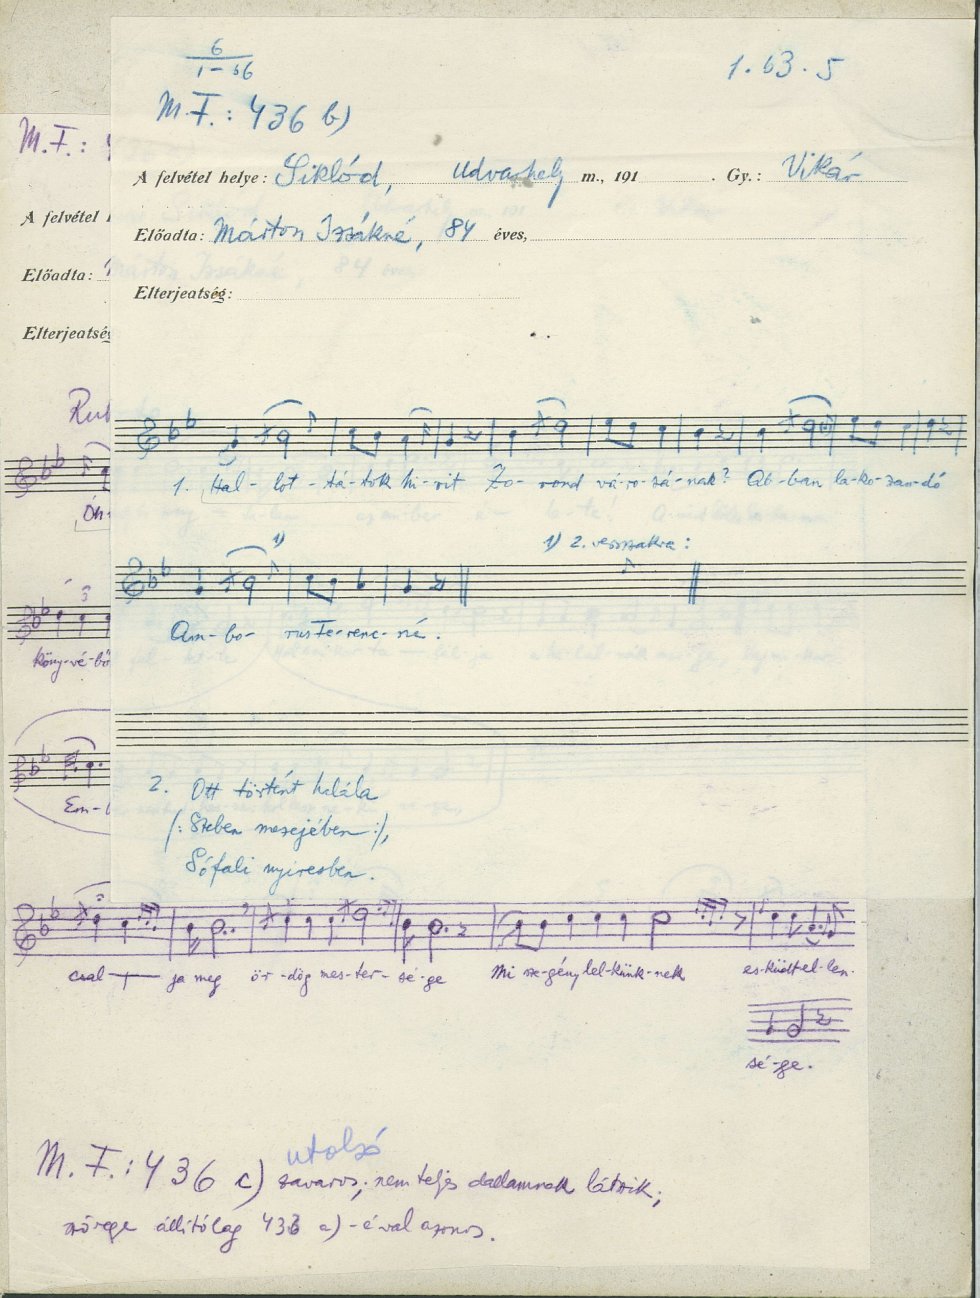 6
1-66
1.63.5
M.F.: 436 b)
A felvétel helye: Siklód, Udvarhely m., 191 . Gy.: Vikár
Előadta: Márton Izsákné, 84 éves,
Elterjeatség:
M.F.:
A felvétel
Előadta:
Elterjeatség
1. Hal-lot-tá-tok hi-rit Zo-rond vá-ro-sá-nak? Ab-ban la-ko-zan-dó
1) 1) 2. versszakra:
Am-bo-rus Fe-renc-né.
3
köny-vé-bő
2. Ott történt halála
(: Szeben mezejében :),
Sófali nyiresben.
Em-b
csal - ja meg ör-dög mes-ter-sé-ge Mi sze-gény lel-künk-nek es-küdt el-len-
sé-ge.
utolsó
M.F.: 436 c) zavaros, nem teljes dallamnak látszik;
szövege állitólag 433 a)-éval azonos.